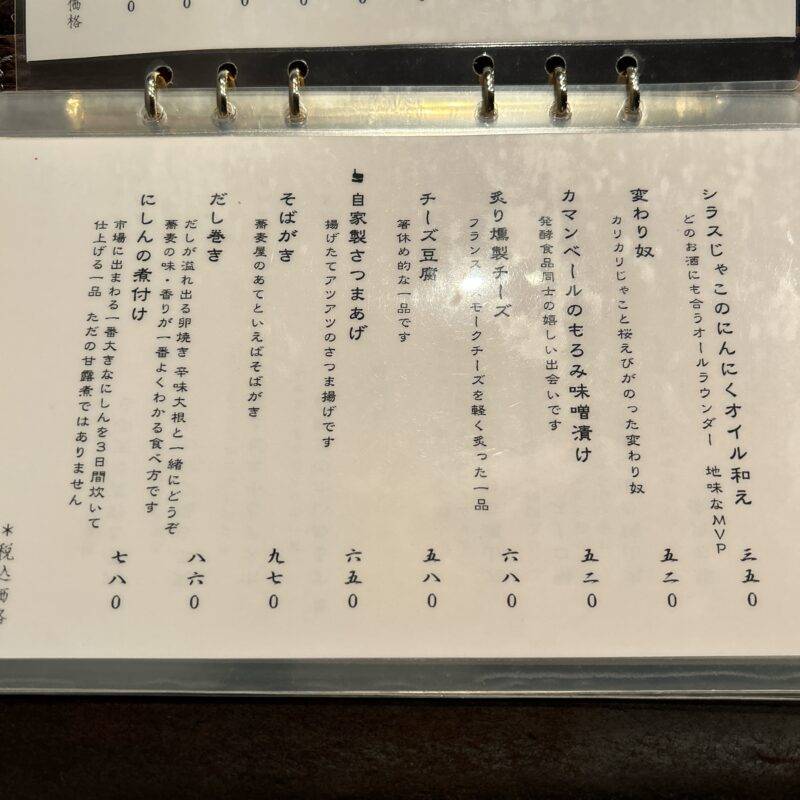 価格
シラスじゃこのにんにくオイル和え
三五0
どのお酒にも合うオールラウンダー 地味なMVP
変わり奴
五二0
カリカリじゃこと桜えびがのった変わり奴
カマンベールのもろみ味噌漬け
五二0
発酵食品同士の嬉しい出会いです
炙り燻製チーズ
六八0
フランス モークチーズを軽く炙った一品
チーズ豆腐
五八0
箸休め的な一品です
自家製さつまあげ
六五0
揚げたてアツアツのさつま揚げです
そばがき
九七0
蕎麦屋のあてといえばそばがき
だし巻き
八六0
だしが溢れ出る卵焼き 辛味大根と一緒にどうぞ
蕎麦の味・香りが一番よくわかる食べ方です
にしんの煮付け
七八0
市場に出まわる一番大きなにしんを3日間炊いて
仕上げる一品 ただの甘露煮ではありません
＊税込価格